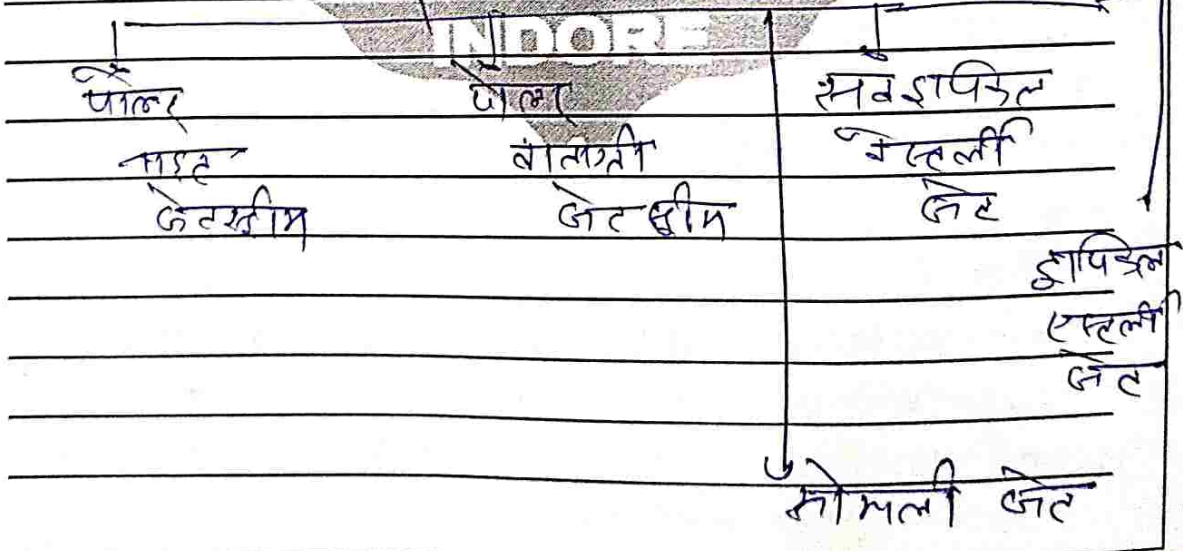 INDORE
पोलर
नाइट
जेटस्ट्रीम
पोलर
वाताग्री
जेट स्ट्रीम
सबट्रापिकल
वेस्टर्ली
जेट
ट्रापिकल
एस्टर्ली
जेट
सोमाली जेट